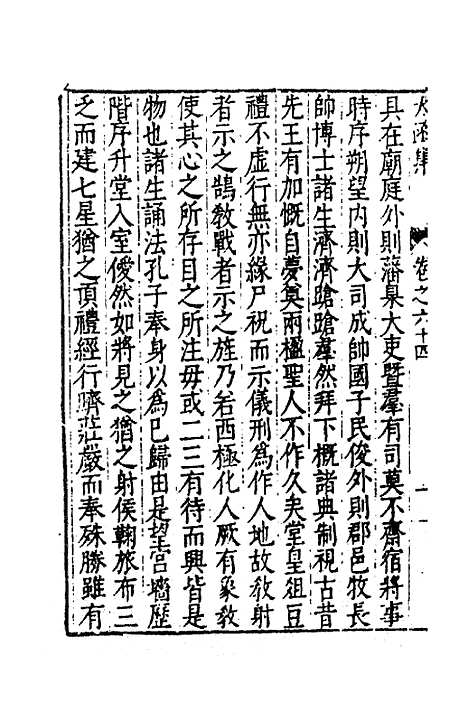 太函集 卷之六十四
具在廟庭外則藩臬大吏暨羣有司莫不齋宿將事
時序朔望内則大司成帥國子民俊外則郡邑牧長
帥博士諸生濟濟蹌蹌羣然拜下概諸典制視古昔
先王有加慨自夢奠兩楹聖人不作久矣堂皇俎豆
禮不虚行無亦緣尸祝而示儀刑爲作人地故敎射
者示之鵠敎戰者示之旌乃若西極化人厥有象敎
使其心之所存目之所注毋或二三有待而興皆是
物也諸生誦法孔子奉身以爲已歸由是望宫牆歷
階序升堂入室僾然如將見之猶之射侯鞠旅布三
乏而建七星猶之頂禮經行躋莊嚴而奉殊勝雖有